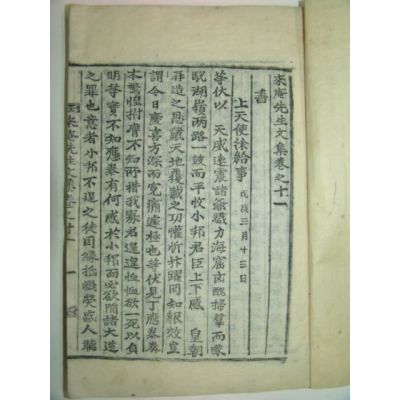 來庵先生文集卷之十一
書
上天使徐給事 戊戌三月十三日
等伏以 天威遠震諸爺戮力海窟凶醜掃而
湖嶺兩路一鼓而平收小邦君臣上下感 皇朝
再造之恩戴天地覆載之功懽忻抃躍罔知報效豈
謂今日慶喜方深而寃痛遽極也等伏見丁應泰奏
本驚惶膺不知所措我寡君遑遑恤恤欲一死以自
明等實不知應泰有何感於小邦而必欲陷諸大逆
之罪也意者小邦不逞之徒因緣抵巇熒惑人聽
來庵先生文集卷之十一